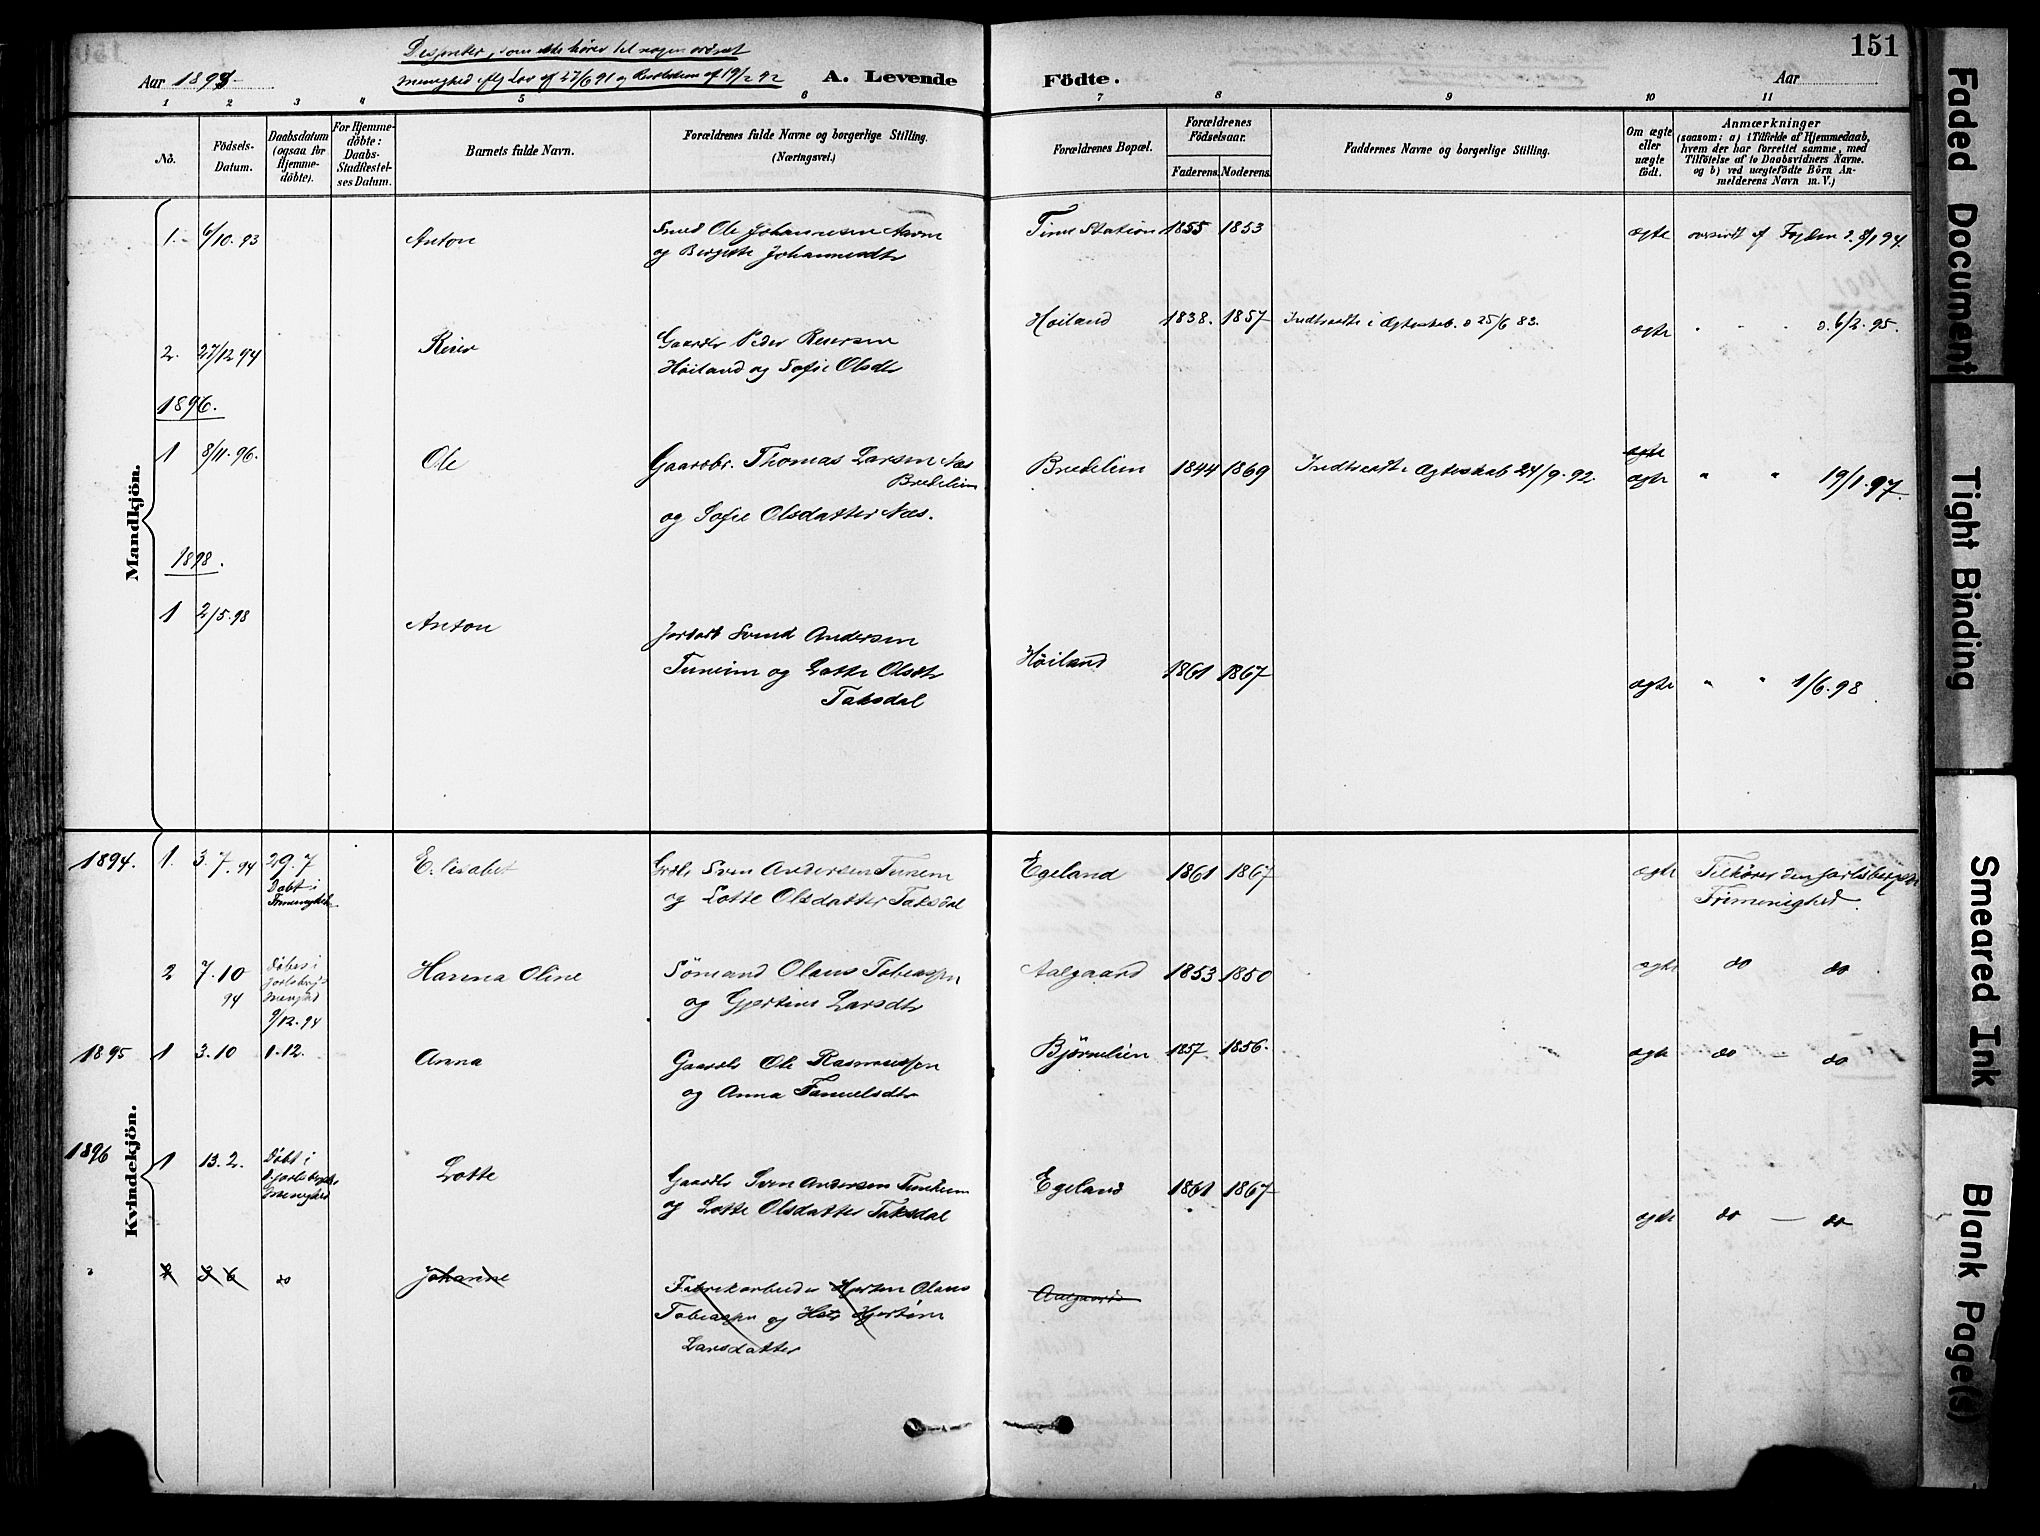 151
Aar 1893
Dissenter, som ikke hører til nogen ordnet
Menighed iflg Lov af 27/6 91 og Resolution af 19/2 92
A. Levende
Födte.
Aar
1 2 3 4 5 6 7 8 9 10 11
No.
Födsels-Datum.
Daabsdatum (ogsaa for Hjemme-döbte).
For Hjemme-döbte: Daabs-Stadfæstel-ses Datum.
Barnets fulde Navn.
Forældrenes fulde Navne og borgerlige Stilling.
(Næringsvei.)
Forældrenes Bopæl.
Forældrenes Födselsaar.
Faderens. Moderens.
Faddernes Navne og borgerlige Stilling.
Om ægte eller uægte födt.
Anmærkninger
(saasom: a) i Tilfælde af Hjemmedaab,
hvem der har forrettet samme, med
Tilföielse af to Daabsvidners Navne.
og b) ved uægtefödte Börn An-
melderens Navn m. V.)
Mandkjön.
1. 6/10. 93 Anton Smed Ole Johannesen
og Bergitte Johannesdtr
Time Station 1855 1853 ægte oversendt af Fogden d. 8/1 94.
2. 27/12 94 Reier Gaardbr Peder Reiersen
Høiland og Sofie Olsdtr
Høiland 1838. 1857 Indtraadte i Ægteskab. d 25/6 83. ægte " " d. 6/2. 95.
1896.
1 8/11. 96. Ole Gaardbr. Thomas Larsen Næs
Bredelien
og Sofie Olsdatter Næs.
Bredelien 1844 1869 Indtraadt i Ægteskab 24/9. 92. ægte
ægte " " 19/1. 97.
1898.
1 2/5. 98 Anton Svend Andersen
Tuneim og Lotte Olsdtr
Taksdal
Høiland 1861 1867 ægte " " 1/6. 98.
Kvindekjön.
1894. 1. 3. 7. 94 29. 7
Døbt i
Frimenighed
Elisabet Grdbr Sven Andersen Tunem
og Lotte Olsdatter Taksdal
Egeland 1861 1867 ægte Tilhører den Jarlsbergske
Frimenighed.
2 7. 10 94 Døbt i
Jarlsbergs
Menighed
9/12. 94
Hanna Oline Sömand Olaus Tobiassen
og Gjertine Larsdtr
Aalgaard 1853 1850 ægte do do
1895 1 3. 10 1. 12. Anna Gaardbr Ole Rasmussen
og Anna Samuelsdtr
Bjørnelien 1857. 1856. ægte do do
1896 1 13. 2. Døbt i
d Jarlsbergske
Frimenighed
Lotte Gaardbr Sven Andersen Tunheim
og Lotte Olsdatter Taksdal
Egeland 1861 1867 ægte do — do
" 2 3 6 do Johanne Fabrikarbeider Olaus
Tobiassen og Hjertine
Larsdatter
Aalgaard
Faded Document
Tight Binding
Smeared Ink
Blank Page(s)